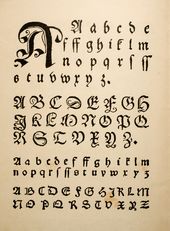 A A a b c d e
f ff g h i k l m
n o p q r s ſ ſſ
s t u v w x y z.
A B C D E F G H
J K L M N O P Q
R S T V X Y Z.
A a b c d e f ff g h i k l m
n o p q r s ſ ſſ s t u v w x y z
A B C D E F G H J K L M
N O P Q R S T V X Y Z